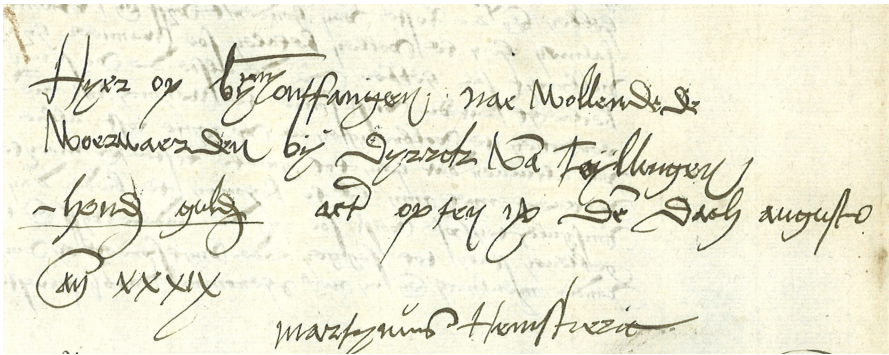 Hyer op by my ontfangen nae Vollende de
Voerwaerden bij Dyrrck Va Teyllingen
hond guld act opten ix de dach augusto
an xxxix
martynus Hemstrerie